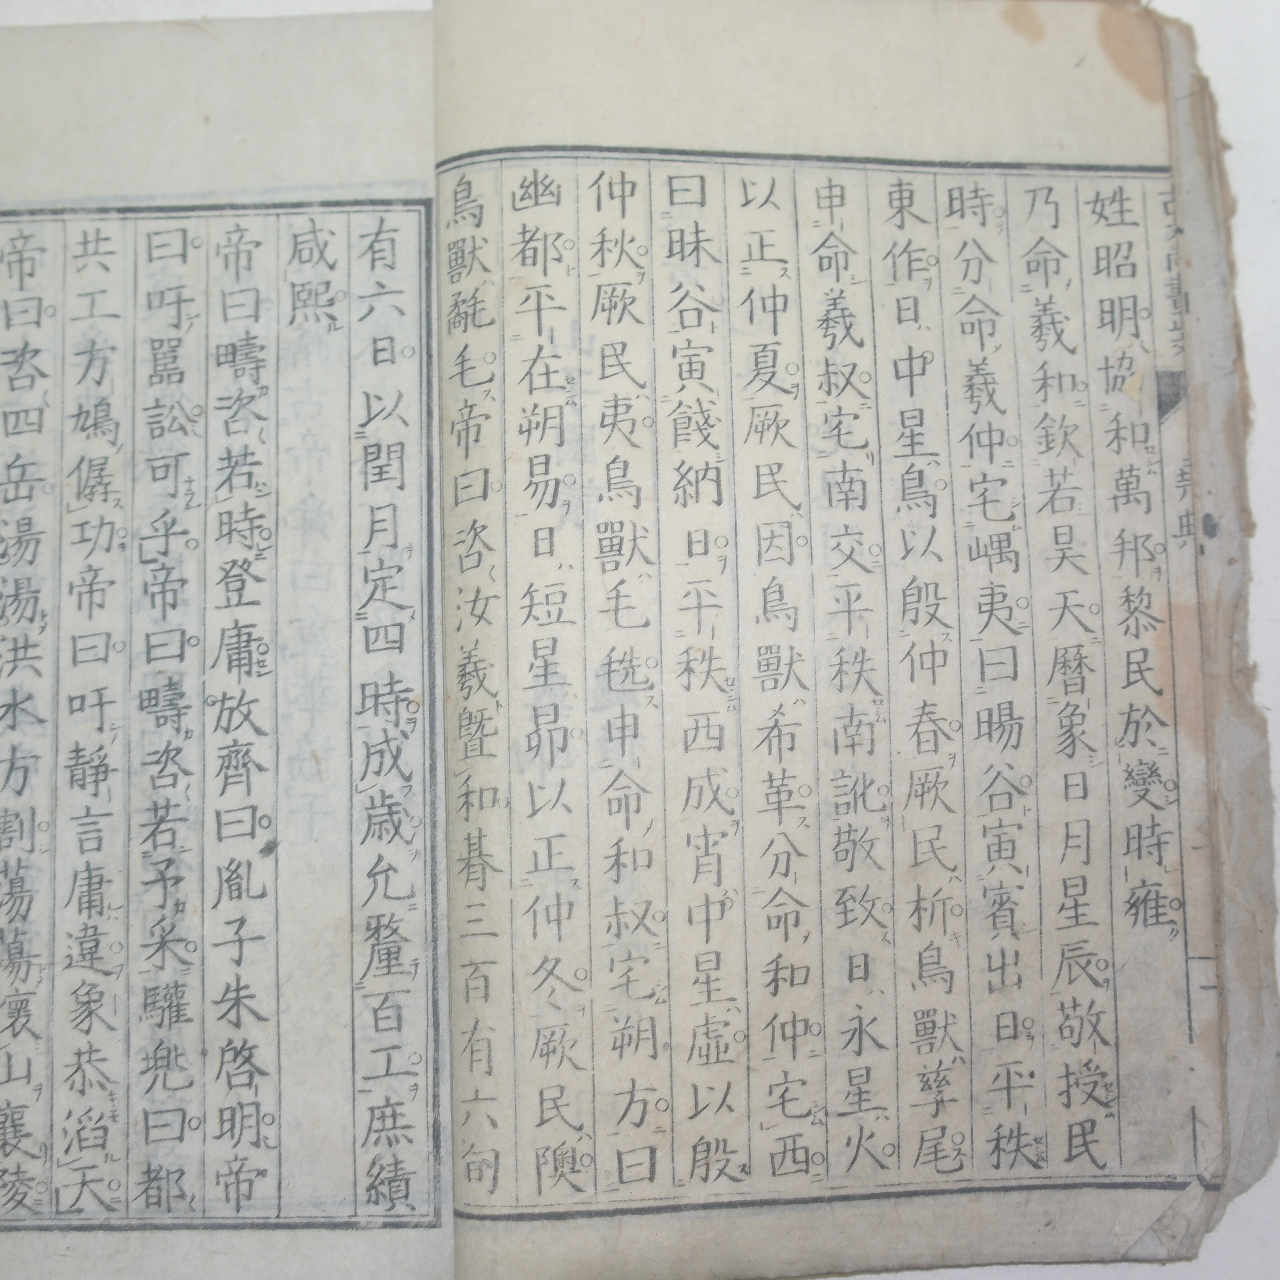 堯典
姓昭明協和萬邦黎民於變時雍
乃命羲和欽若昊天曆象日月星辰敬授民
時分命羲仲宅嵎夷曰暘谷寅賓出日平秩
東作日中星鳥以殷仲春厥民析鳥獸孳尾
申命羲叔宅南交平秩南訛敬致日永星火
以正仲夏厥民因鳥獸希革分命和仲宅西
曰昧谷寅餞納日平秩西成宵中星虛以殷
仲秋厥民夷鳥獸毛毨申命和叔宅朔方曰
幽都平在朔易日短星昴以正仲冬厥民隩
鳥獸氄毛帝曰咨汝羲曁和朞三百有六旬
有六日以閏月定四時成歳允釐百工庶績
咸熙
帝曰疇咨若時登庸放齊曰胤子朱啓明帝
曰吁嚚訟可乎帝曰疇咨若予采驩兜曰都
共工方鳩僝功帝曰吁靜言庸違象恭滔天
帝曰咨四岳湯湯洪水方割蕩蕩懷山襄陵